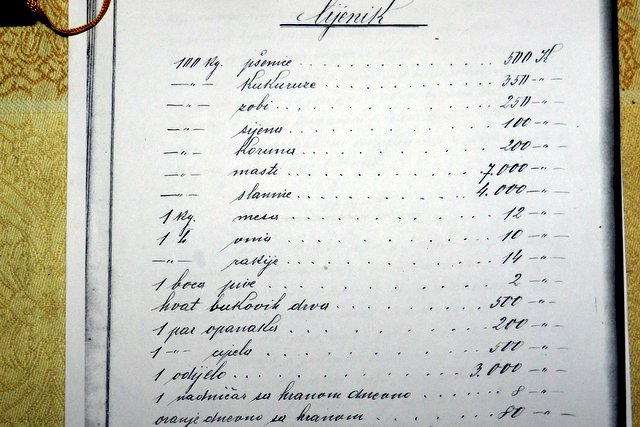 Cijenik
100 kg. pšenice . . . . . . . . . . . . 500 K
—"— kukuruze . . . . . . . . . . . . 350 —"—
—"— zobi . . . . . . . . . . . . 250 —"—
—"— sijena . . . . . . . . . . . . 100 —"—
—"— koruna . . . . . . . . . . . . 200 —"—
—"— masti . . . . . . . . . . . . 7.000 —"—
—"— slanine . . . . . . . . . . . . 4.000 —"—
1 kg. mesa . . . . . . . . . . . . 12 —"—
1 L vina . . . . . . . . . . . . 10 —"—
—"— rakije . . . . . . . . . . . . 14 —"—
1 boca pive . . . . . . . . . . . . 2 —"—
hvat bukovih drva . . . . . . . . . 500 —"—
1 par opanaka . . . . . . . . . . 200 —"—
1 —"— cipela . . . . . . . . . . . 500 —"—
1 odijelo . . . . . . . . . . . . 3.000 —"—
1 nadničar sa hranom dnevno . . . . . . 8 —"—
oranje dnevno sa hranom . . . . . . . 80 —"—